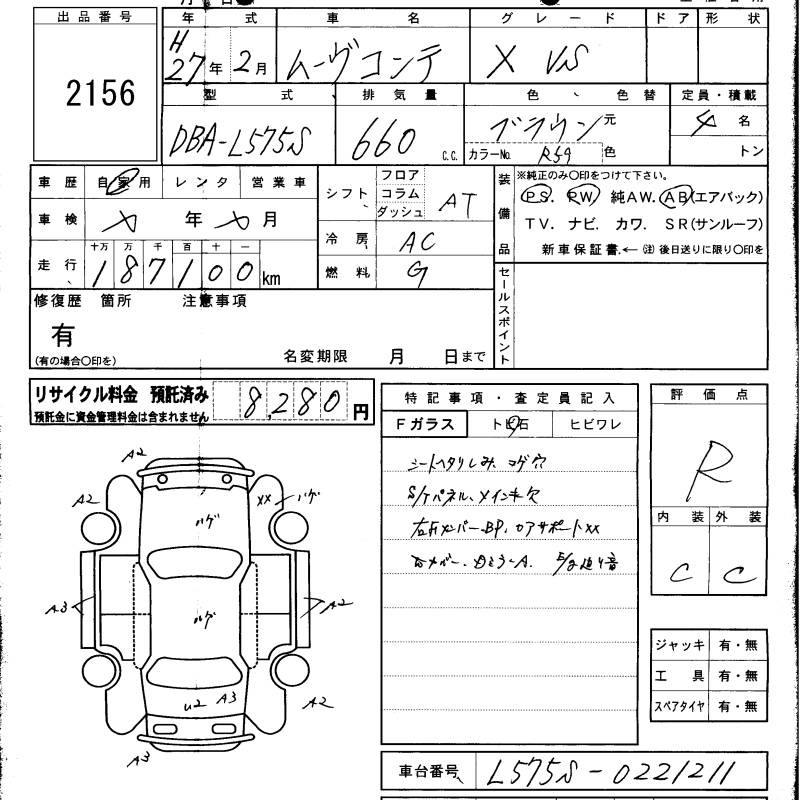 出品番号
2156
年 式 車 名 グ レ ー ド ド ア 形 状
H27年 2月 ムーヴコンテ X VS
型 式 排 気 量 色 、 色 替 定員・積載
DBA-L575S 660 c.c. ブラウン 元 色 4 名
カラーNo. R59 トン
車 歴 自 家 用 レ ン タ 営 業 車
車 検 年 月
走 行 十万 万 千 百 十 一
187100 km
シフト フロア コラム ダッシュ AT
冷 房 AC
燃 料 G
装備品
※純正のみ○印をつけて下さい。
PS. PW. 純AW. AB(エアバック)
TV. ナビ. カワ. SR(サンルーフ)
新車保証書.←(注)後日送りに限り○印を
セールスポイント
修復歴 箇所 注意事項
有
(有の場合○印を)
名変期限 月 日まで
リサイクル料金 預託済み 8,280 円
預託金に資金管理料金は含まれません
特 記 事 項 ・ 査 定 員 記 入
Fガラス トビ石 ヒビワレ
シートヘタリしみ、コゲ穴
S/Fパネル、メインキ欠
評 価 点
R
内 装 外 装
C C
ジャッキ 有・無
工 具 有・無
スペアタイヤ 有・無
A2
A2
XX ハゲ
ハゲ
A3
A2
ハゲ
U2 A3
A2
A3
車台番号 L575S-0221211